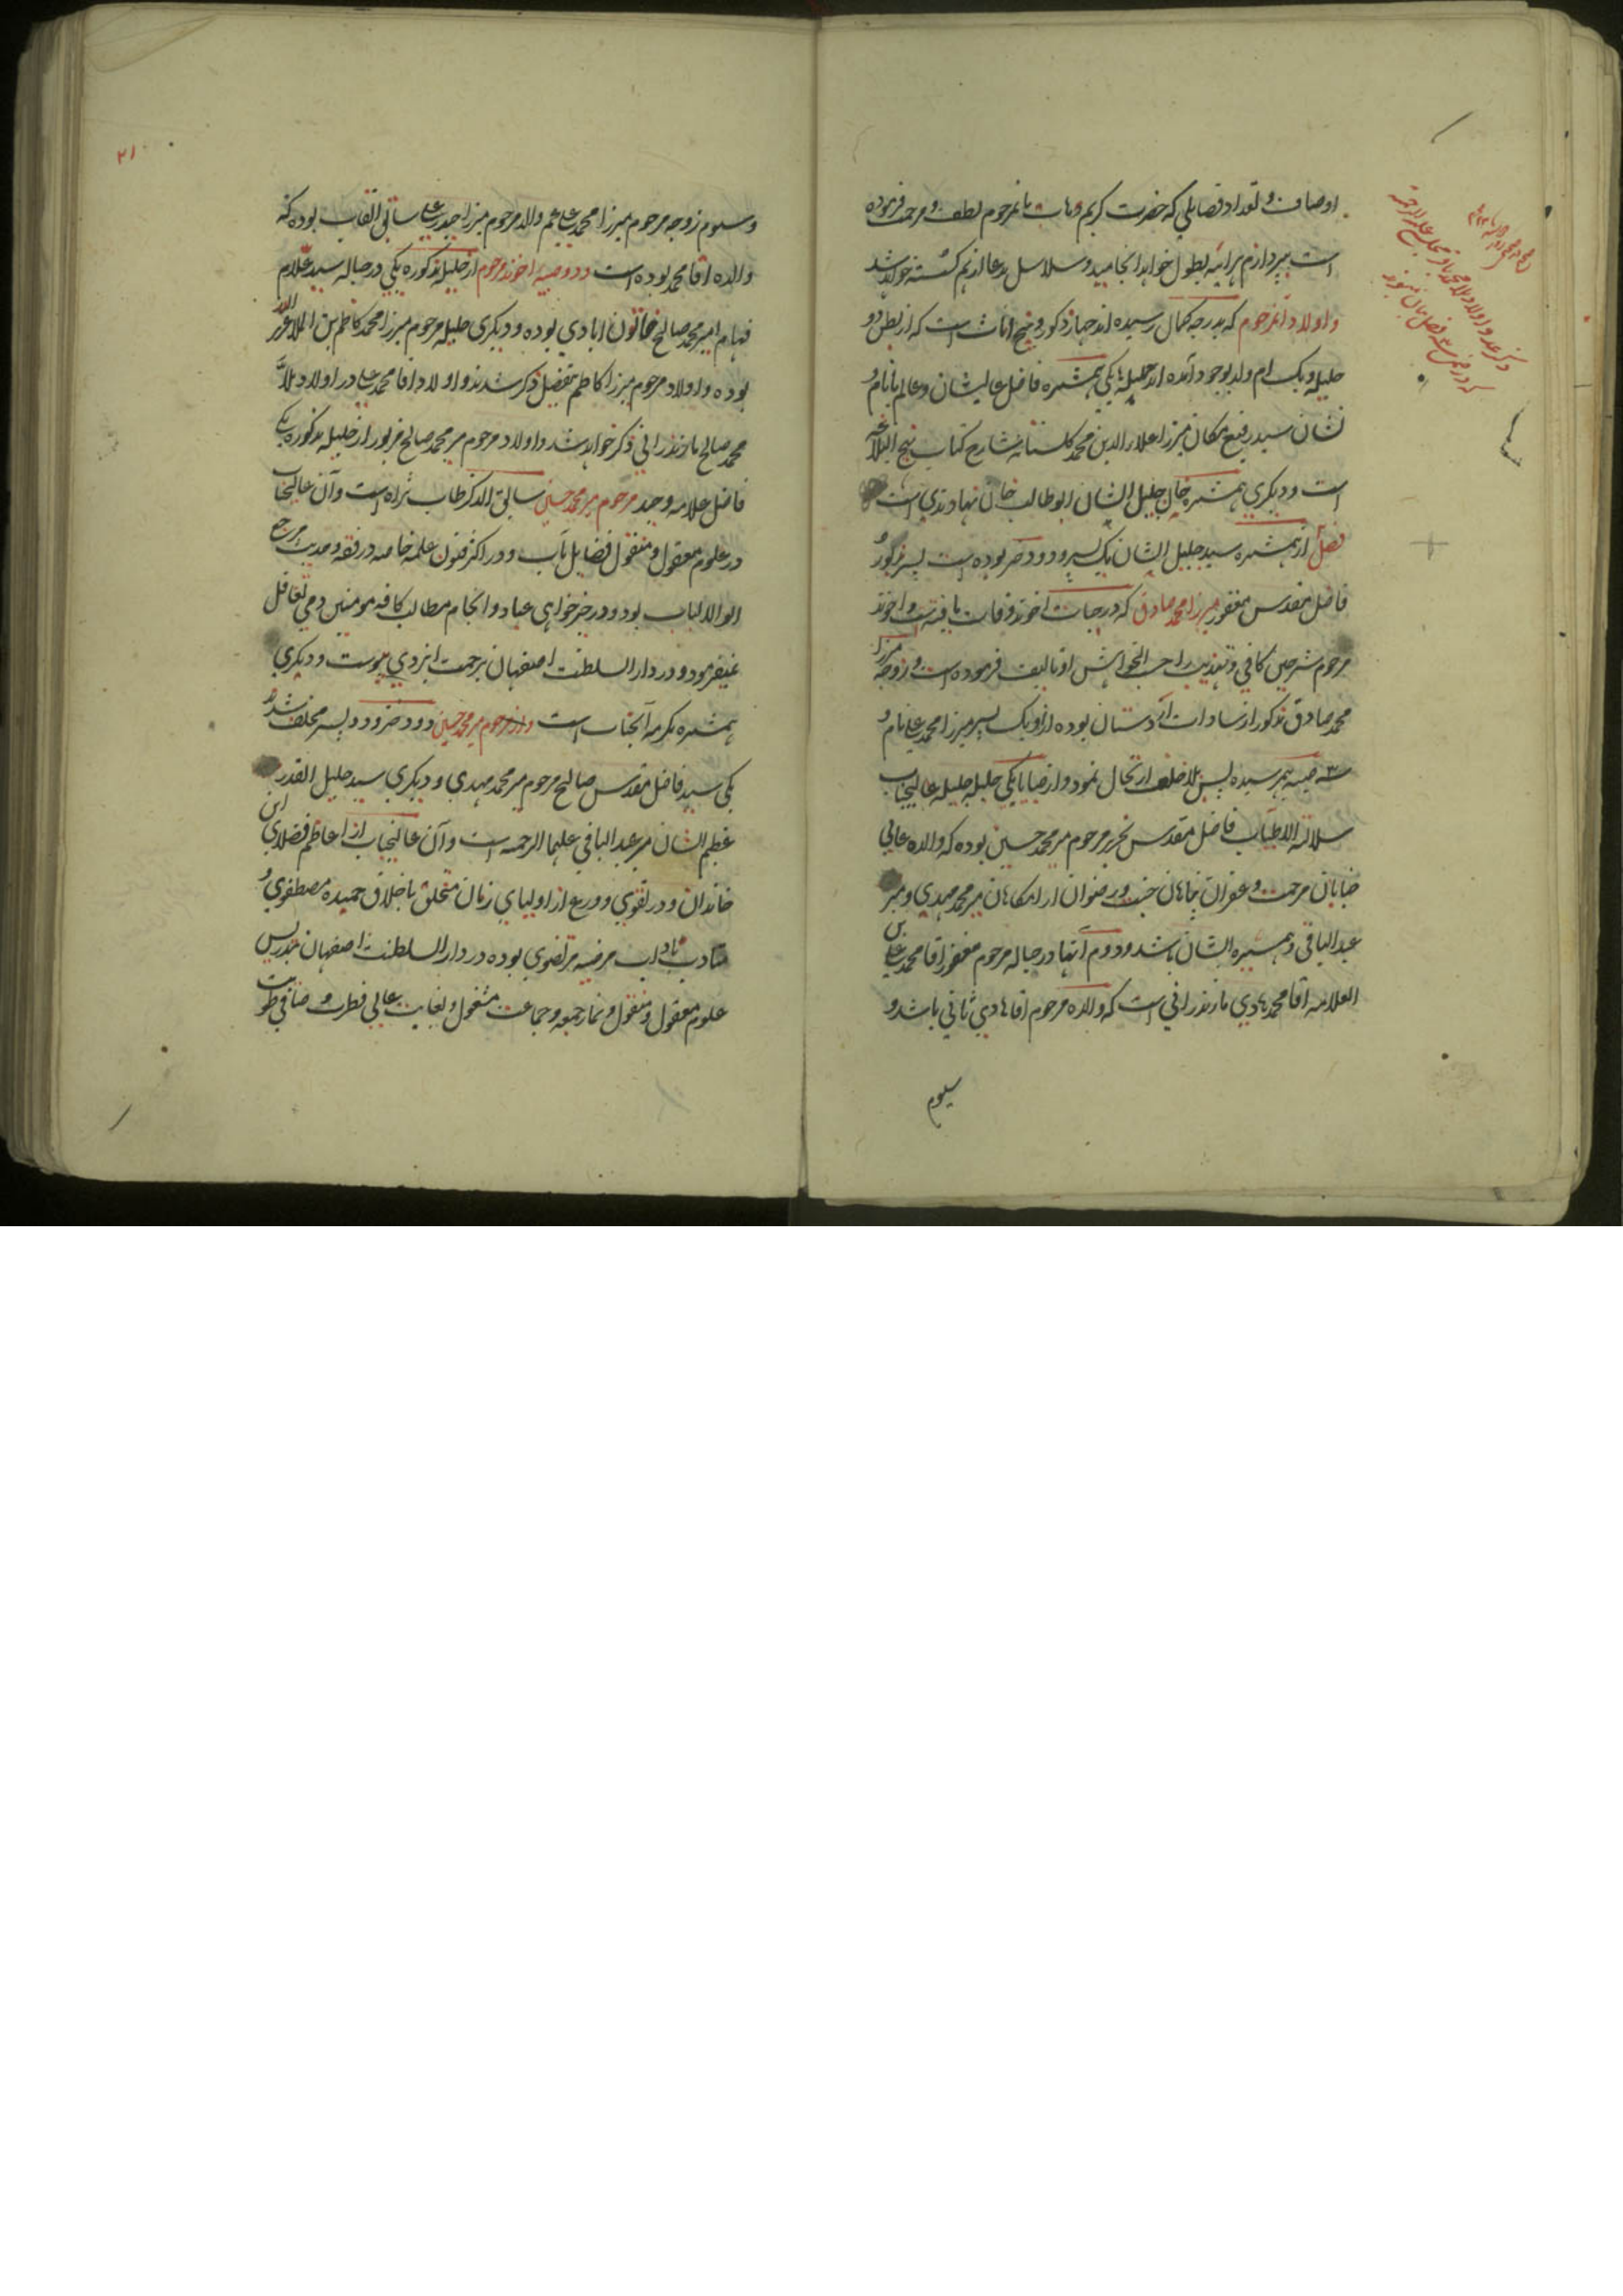 اوصاف و تعداد فضایلی که حضرت کریم وهاب بانمرحوم لطف و مرحمت فرموده
است بپردازم هرآینه بطول خواهد انجامید و سلاسل مدعا از هم گسسته خواهد شد
و اولاد آنمرحوم که بدرجه کمال رسیده اند چهار ذکور و پنج اناث است که از بطن دو
حلیله و یک ام ولد بوجود آمده اند حلیله ها یکی همشیره فاضل عالیشان و عالم بانام و
نشان سید رفیع مکان میرزا علاء الدین محمد گلستانه شارح کتاب نهج البلاغه
است و دیگری همشیره خان جلیل الشان ابوطالب خان نهاوندی است
فصل از همشیره سید جلیل الشان یک پسر و دو دختر بوده است پسر مزبور
فاضل مقدس مغفور میرزا محمد صادق که در حیات اخوند وفات یافته است و اخوند
مرحوم شرحین کافی و تهذیب را حسب الخواهش او تالیف فرموده است و زوجه میرزا
محمد صادق مذکور از سادات اردستان بوده از او یک پسر میرزا محمد علی نام و
سه صبیه بهم رسیده پسر بلا خلف ارتحال نمود و از صبایا یکی حلیله جلیله عالیجناب
سلالة الاطیاب فاضل مقدس نحریر مرحوم میر محمد حسین بوده که والده عالی
جنابان مرحمت و غفران پناهان جنت و رضوان آرامگاهان میر محمد مهدی و میر
عبد الباقی و همشیره ایشان باشد و دوم آنها در حباله مرحوم مغفور اقا محمد علی بن
العلامه اقا محمد هادی مازندرانی است که والده مرحوم اقا هادی ثانی باشد و
سیوم
۲۱
و سیوم زوجه مرحوم میرزا محمد علی عم والد مرحوم میرزا حیدر علی سابق القاب بوده که
والده اقا محمد بوده است و دو صبیه اخوند مرحوم از حلیله مذکوره یکی در حباله سید علام
فهام امیر محمد صالح خاتون ابادی بوده و دیگری حلیله مرحوم میرزا محمد کاظم بن الملا عزیز الله
بوده و اولاد مرحوم میرزا کاظم بتفصیل ذکر شدند و اولاد اقا محمد علی در اولاد ملا
محمد صالح مازندرانی ذکر خواهد شد و اولاد مرحوم میر محمد صالح مزبور از حلیله مذکوره یکی
فاضل علامه وحید مرحوم میر محمد حسین سابق الذکر طاب ثراه است و آن عالیجناب
در علوم معقول و منقول فضایل مآب و در اکثر فنون علمیه خاصه در فقه و حدیث مرجع
اولو الالباب بود و در خیر خواهی عباد و انجام مطالب کافه مومنین دمی تغافل
نمیفرمود و در دار السلطنت اصفهان برحمت ایزدی پیوست و دیگری
همشیره مکرمه آنجناب است و از مرحوم میر محمد حسین دو دختر و دو پسر مخلف شد
یکی سید فاضل مقدس صالح مرحوم میر محمد مهدی و دیگری سید جلیل القدر
عظیم الشان میر عبد الباقی علیهما الرحمه است و آن عالیجناب از اعاظم فضلای این
خاندان و در تقوی و ورع از اولیای زمان متخلق باخلاق حمیده مصطفوی و
متادب باداب مرضیه مرتضوی بوده در دار السلطنت اصفهان بتدریس
علوم معقول و منقول و نماز جمعه و جماعت مشغول و بغایت عالی فطرت و صافی طویت